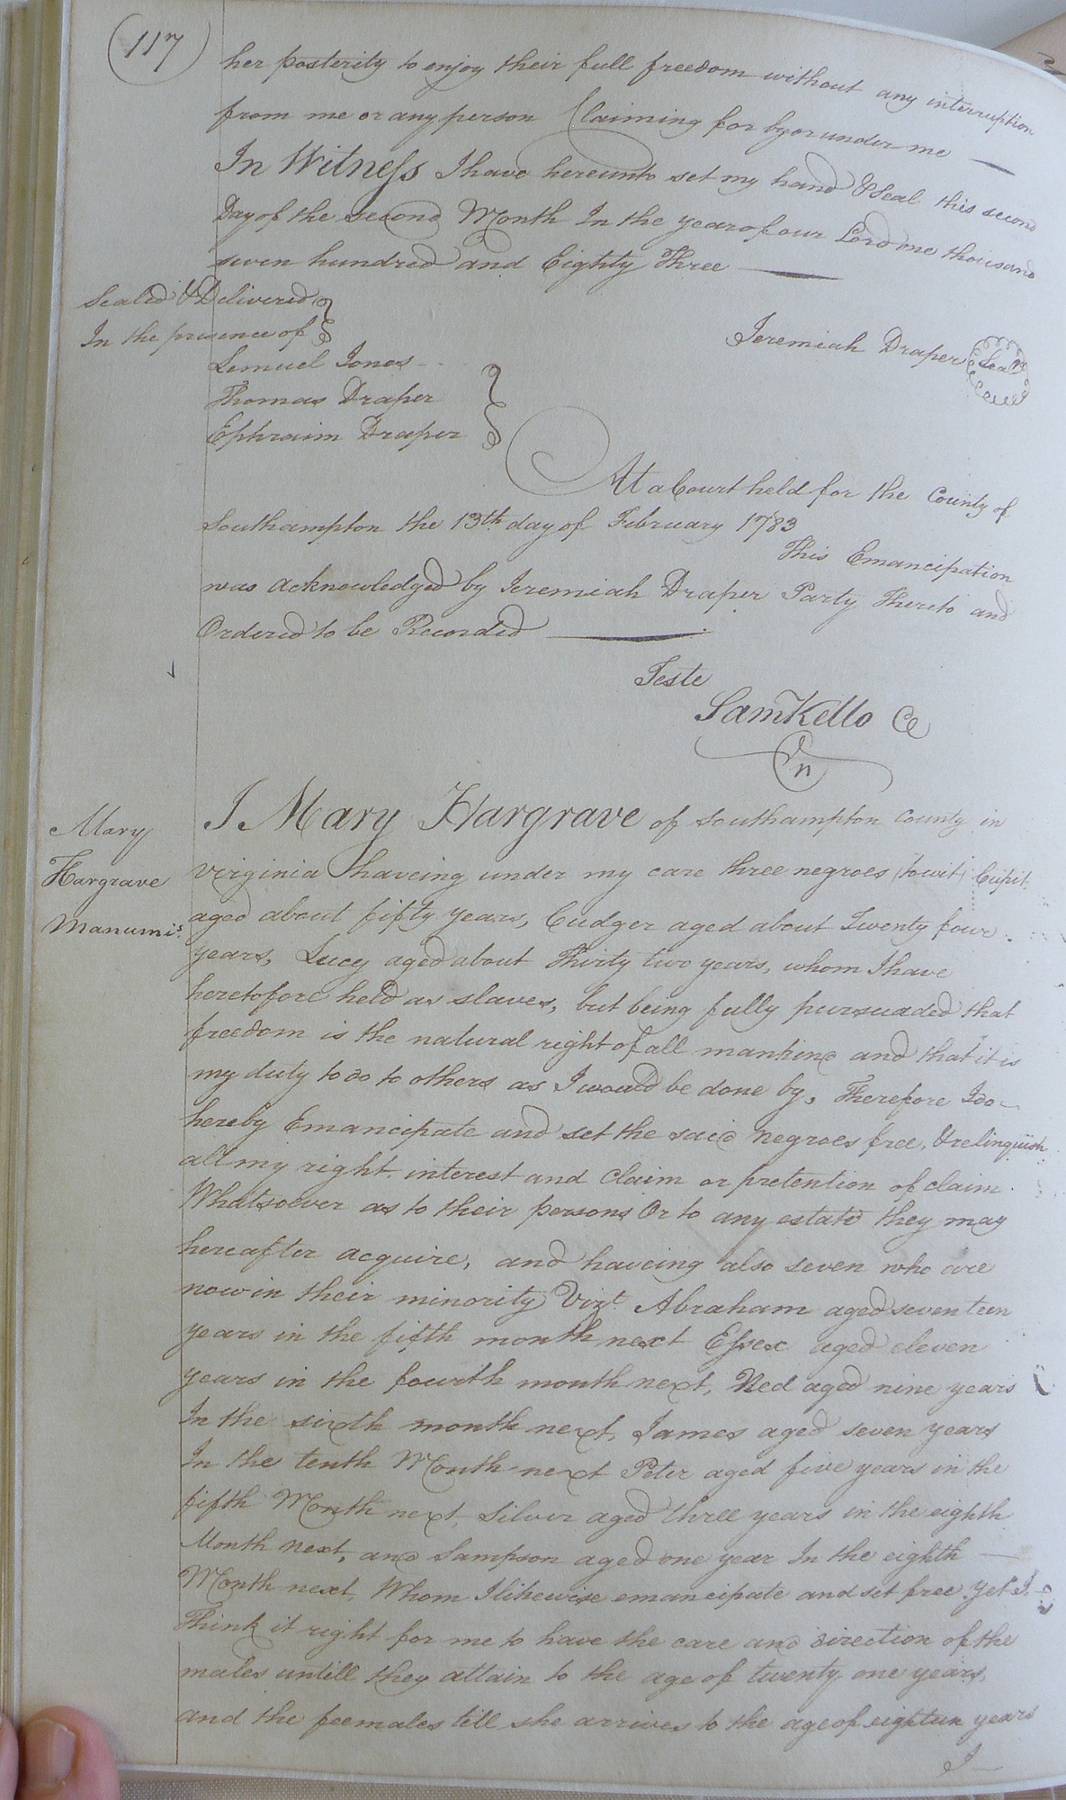 117
her posterity to enjoy their full freedom without any interruption
from me or any person Claiming for by or under me
In Witness I have hereunto set my hand & Seal this second
Day of the second Month In the year of our Lord one thousand
seven hundred and Eighty Three
Sealed & Delivered
In the presence of
Jeremiah Draper Seal
Lemuel Jones
Thomas Draper
Ephraim Draper
At a Court held for the County of
Southampton the 13th day of February 1783
This Emancipation
was acknowledged by Jeremiah Draper Party Thereto and
Ordered to be Recorded
Teste
Sam Kello
Mary
Hargrave
Manumis.
I Mary Hargrave of Southampton County in
Virginia haveing under my care three negroes (towit) Cupit
aged about fifty years, Cudger aged about Twenty four
years, Lucy aged about Thirty two years, whom I have
heretofore held as slaves, but being fully pursuaded that
freedom is the natural right of all mankind and that it is
my duty to do to others as I would be done by, Therefore I do
hereby Emancipate and set the said negroes free, & relinquish
all my right interest and Claim or pretention of claim
Whatsoever as to their persons Or to any estate they may
hereafter acquire, and haveing also seven who are
now in their minority Vizt. Abraham aged seventeen
years in the fifth month next Essex aged eleven
years in the fourth month next, Ned aged nine years
In the sixth month next, James aged seven years
In the tenth Month next Peter aged five years in the
fifth Month next, Silver aged three years in the eighth
Month next, and Sampson aged one year In the eighth
Month next, Whom I likewise emancipate and set free yet I
Think it right for me to have the care and direction of the
males untill they attain to the age of twenty one years,
and the feemales till she arrives to the age of eighteen years
I